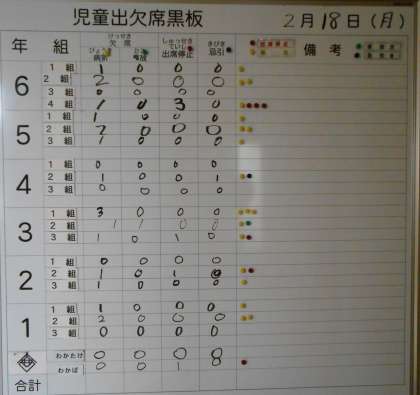 児童出欠席黒板 2月18日(月)
年 組 けっせき 欠席 しゅっせき ていし 出席停止 きびき 忌引 備考
びょうき 病気 じこ 事故
6 1組 1 0 0 0
2組 2 0 0 0
3組 0 0 0 0
4組 1 0 3 0
5 1組 1 0 0 0
2組 2 0 0 0
3組 1 0 0 0
4 1組 0 0 0 0
2組 1 0 0 1
3組 0 0 0 0
3 1組 3 0 0 0
2組 1 1 0 0
3組 1 0 1 0
2 1組 0 0 0 0
2組 1 0 1 0
3組 1 0 0 0
1 1組 1 0 0 0
2組 2 0 0 0
3組 0 0 0 0
わかたけ 0 0 0 0
わかば 0 0 1 0
合計